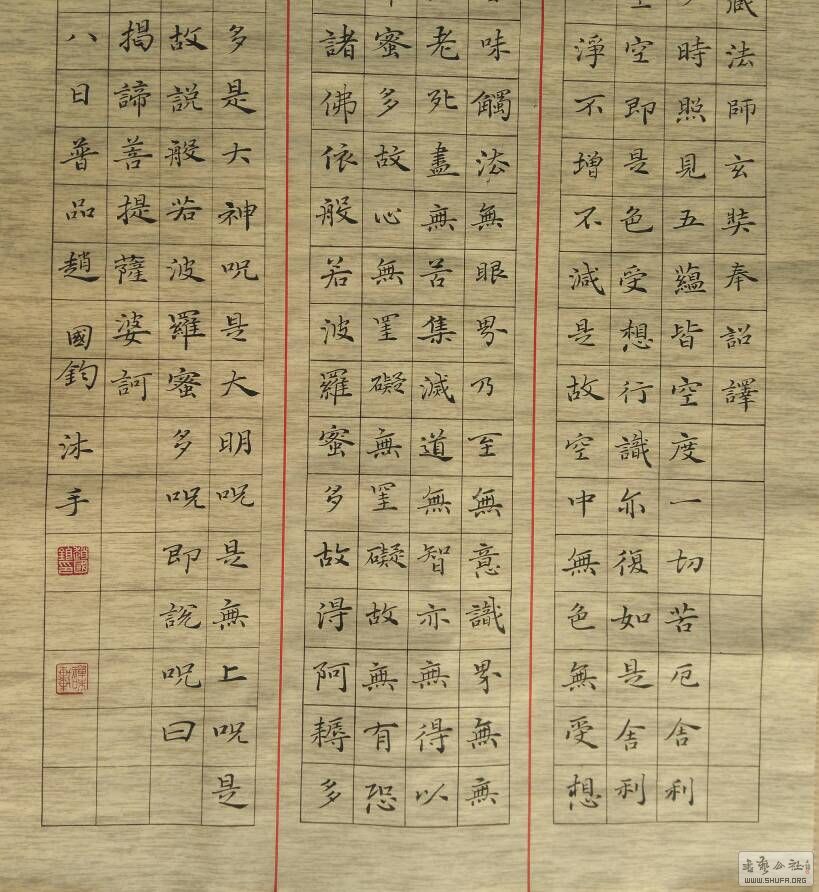 藏法師玄奘奉詔譯
時照見五蘊皆空度一切苦厄舍利
空即是色受想行識亦復如是舍利
淨不增不減是故空中無色無受想
味觸法無眼界乃至無意識界無無
老死盡無苦集滅道無智亦無得以
蜜多故心無罣礙無罣礙故無有恐
諸佛依般若波羅蜜多故得阿耨多
多是大神呪是大明呪是無上呪是
故說般若波羅蜜多呪即說呪曰
揭諦菩提薩婆訶
八日普品趙國鈞沐手
WWW.SHUFA.ORG